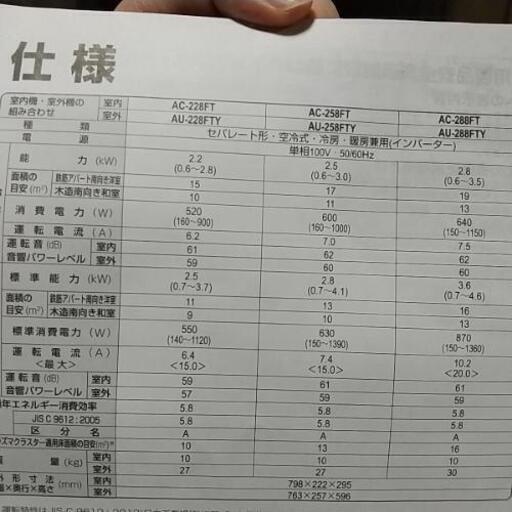 仕様
室内機・室外機の組み合わせ 室内 AC-228FT AC-258FT AC-288FT
室外 AU-228FTY AU-258FTY AU-288FTY
種類 セパレート形・空冷式・冷房・暖房兼用(インバーター)
電源 単相100V・50/60Hz
能力(kW) 2.2 2.5 2.8
(0.6~2.8) (0.6~3.0) (0.6~3.5)
面積の目安(m²) 鉄筋アパート南向き洋室 15 17 19
木造南向き和室 10 11 13
消費電力(W) 520 600 640
(160~900) (160~1000) (150~1150)
運転電流(A) 6.2 7.0 7.5
運転音(dB) 音響パワーレベル 室内 61 62 62
室外 59 60 60
標準能力(kW) 2.5 2.8 3.6
(0.7~3.7) (0.7~4.1) (0.7~4.6)
面積の目安(m²) 鉄筋アパート南向き洋室 11 13 16
木造南向き和室 9 10 13
標準消費電力(W) 550 630 870
(140~1120) (150~1390) (150~1360)
運転電流(A) 6.4 7.4 10.2
<最大> <15.0> <15.0> <20.0>
運転音(dB) 音響パワーレベル 室内 59 61 61
室外 57 59 61
年エネルギー消費効率 5.8 5.8 5.8
JIS C 9612:2005 5.8 5.8 5.8
区分名 A A A
ズマクラスター適用床面積の目安(m²)* 10 13 16
量(kg) 室内 10 10 10
室外 27 27 30
形寸法(mm) 室内 798×222×295
×奥行×高さ 室外 763×257×596